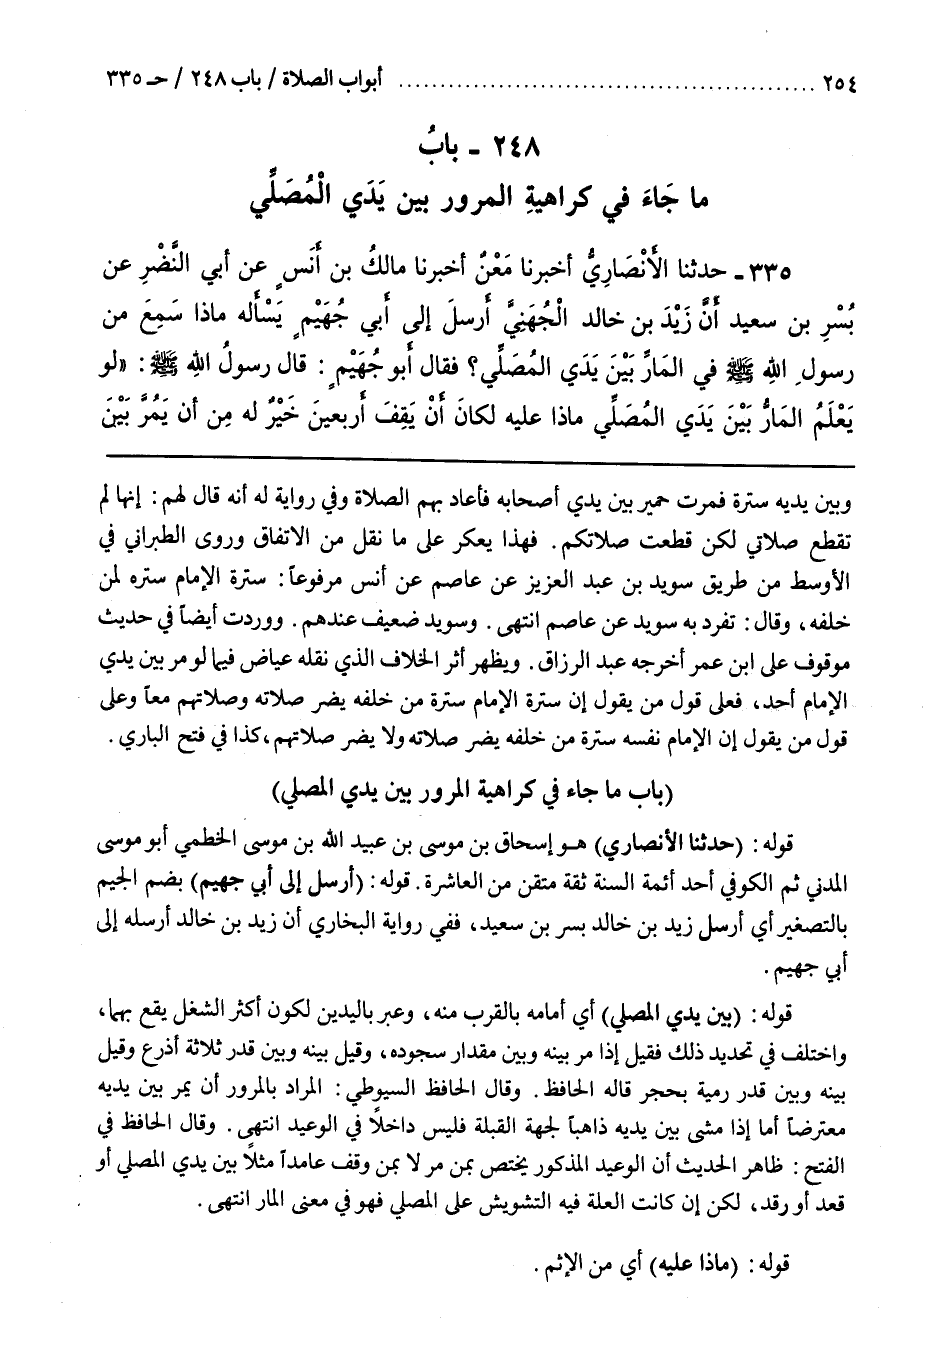 ٢٥٤ ........................................ أبواب الصلاة / باب ٢٤٨ / حـ ٣٣٥
٢٤٨ - بابُ
ما جَاءَ في كراهيةِ المرور بين يَدَي الْمُصَلِّي
٣٣٥ - حدثنا الأَنْصَارِيُّ أخبرنا مَعْنٌ أخبرنا مالكُ بن أَنَسٍ عن أبي النَّضْرِ عن
بُسْرِ بن سعيد أَنَّ زَيْدَ بن خالد الْجُهَنِيَّ أَرسلَ إلى أَبي جُهَيْمٍ يَسْأَله ماذا سَمِعَ من
رسولِ اللهِ ﷺ في المَارِّ بَيْنَ يَدَي المُصَلِّي؟ فقال أَبو جُهَيْمٍ : قال رسولُ اللهِ ﷺ : «لو
يَعْلَمُ المَارُّ بَيْنَ يَدَي المُصَلِّي ماذا عليه لكانَ أَنْ يَقِفَ أَربعينَ خَيْرٌ له مِن أن يَمُرَّ بَيْنَ
وبين يديه سترة فمرت حمير بين يدي أصحابه فأعاد بهم الصلاة وفي رواية له أنه قال لهم : إنها لم
تقطع صلاتي لكن قطعت صلاتكم . فهذا يعكر على ما نقل من الاتفاق وروى الطبراني في
الأوسط من طريق سويد بن عبد العزيز عن عاصم عن أنس مرفوعاً : سترة الإمام ستره لمن
خلفه، وقال : تفرد به سويد عن عاصم انتهى . وسويد ضعيف عندهم . ووردت أيضاً في حديث
موقوف على ابن عمر أخرجه عبد الرزاق . ويظهر أثر الخلاف الذي نقله عياض فيما لو مر بين يدي
الإمام أحد، فعلى قول من يقول إن سترة الإمام سترة من خلفه يضر صلاته وصلاتهم معاً وعلى
قول من يقول إن الإمام نفسه سترة من خلفه يضر صلاته ولا يضر صلاتهم، كذا في فتح الباري .
(باب ما جاء في كراهية المرور بين يدي المصلي)
قوله : (حدثنا الأنصاري) هـو إسحاق بن موسى بن عبيد الله بن موسى الخطمي أبو موسى
المدني ثم الكوفي أحد أئمة السنة ثقة متقن من العاشرة . قوله : (أرسل إلى أبي جهيم) بضم الجيم
بالتصغير أي أرسل زيد بن خالد بسر بن سعيد، ففي رواية البخاري أن زيد بن خالد أرسله إلى
أبي جهيم .
قوله : (بين يدي المصلي) أي أمامه بالقرب منه، وعبر باليدين لكون أكثر الشغل يقع بهما،
واختلف في تحديد ذلك فقيل إذا مر بينه وبين مقدار سجوده، وقيل بينه وبين قدر ثلاثة أذرع وقيل
بينه وبين قدر رمية بحجر قاله الحافظ . وقال الحافظ السيوطي : المراد بالمرور أن يمر بين يديه
معترضاً أما إذا مشى بين يديه ذاهباً لجهة القبلة فليس داخلاً في الوعيد انتهى . وقال الحافظ في
الفتح : ظاهر الحديث أن الوعيد المذكور يختص بمن مر لا بمن وقف عامداً مثلاً بين يدي المصلي أو
قعد أو رقد، لكن إن كانت العلة فيه التشويش على المصلي فهو في معنى المار انتهى .
قوله : (ماذا عليه) أي من الإثم .